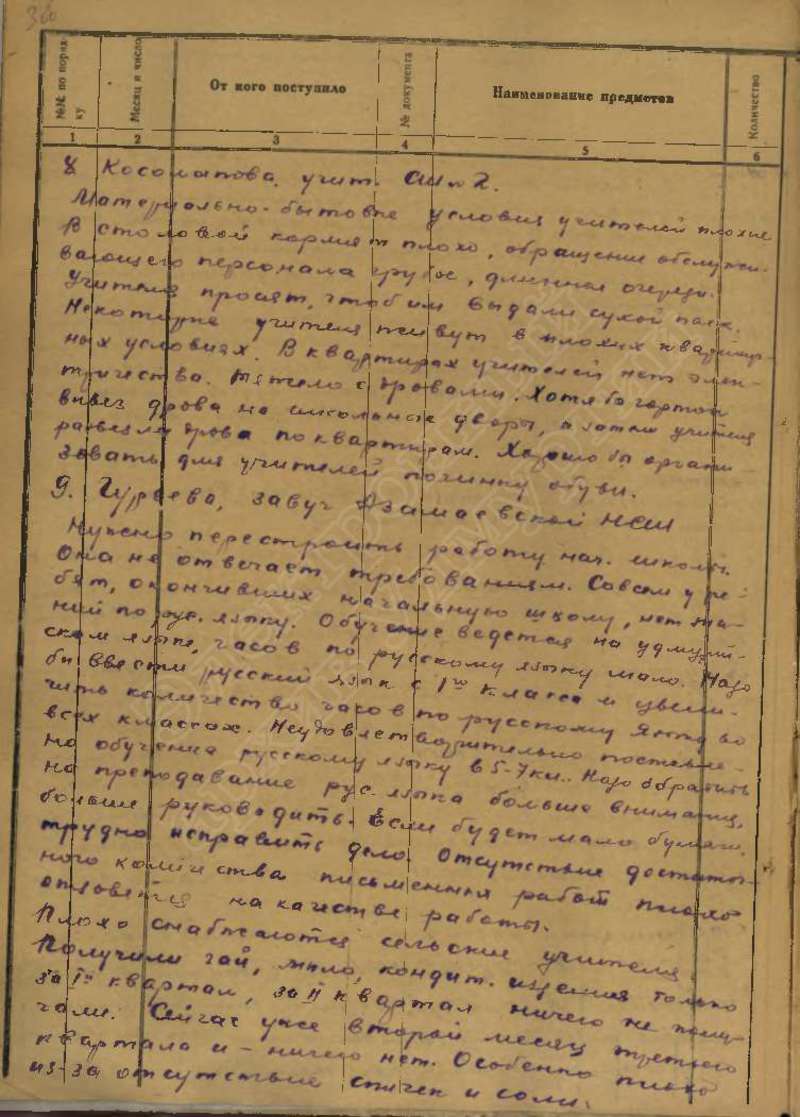 360
№№ по порядку
Месяц и число
От кого поступило
№ документа
Наименование предметов
Количество
1 2 3 4 5 6
8 Косолапова, учит. СШ № 2.
Материально-бытовые условия учителей плохие
В столовой кормят плохо, обращение обслужи-
вающего персонала грубое, длинная очередь.
Учителя просят, чтоб им выдали сухой паек.
Некоторые учителя живут в плохих квартир-
ных условиях. В квартирах учителей нет элек-
тричества. Тяжело с дровами. Хотя бы гортоп
вывез дрова на школьные дворы, а затем учителя
развезли дрова по квартирам. Хорошо бы органи
зовать для учителей починку обуви.
9. Гуреева, завуч Азамаевской НСШ
Нужно перестроить работу нач. школы.
Она не отвечает требованиям. Совсем у ре-
бят, окончивших начальную школу, нет зна-
ний по рус. языку. Обучение ведется на удмурт-
ском языке, часов по русскому языку мало. Надо
бы ввести русский язык с 1го класса и увели-
чить количество часов по русскому языку во
всех классах. Неудовлетворительно поставле-
но обучение русскому языку в 5-7 кл. Надо обратить
на преподавание рус. языка больше внимания,
больше руководить. Если будет мало бумаги,
трудно исправить дело. Отсутствие достаточ-
ного количества письменных работ плохо
отзовется на качестве работы.
Плохо снабжаются сельские учителя.
Получили чай, мыло, кондит. изделия только
за Iй квартал, за II квартал ничего не полу-
чали. Сейчас уже второй месяц третьего
квартала и - ничего нет. Особенно плохо
из-за отсутствие спичек и соли.